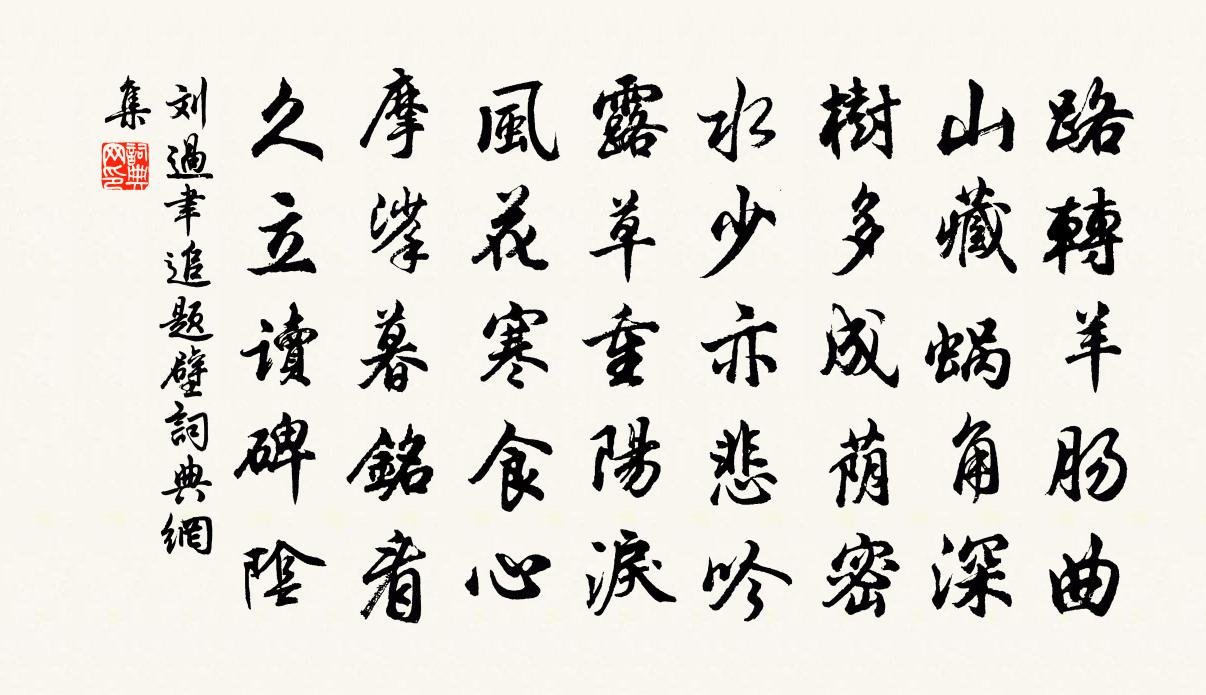 路轉羊肠曲
山藏蜗角深
樹多成荫密
水少亦悲吟
露草重陽淚
風花寒食心
摩挲暮銘看
久立读碑陰
刘過聿追題壁詞典網
集
詞典
网印